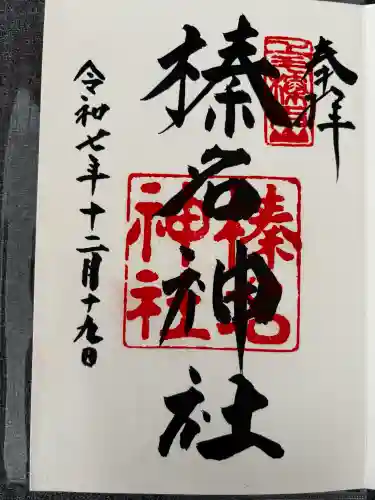 奉拝
榛名神社
榛名
神社
令和七年十二月十九日